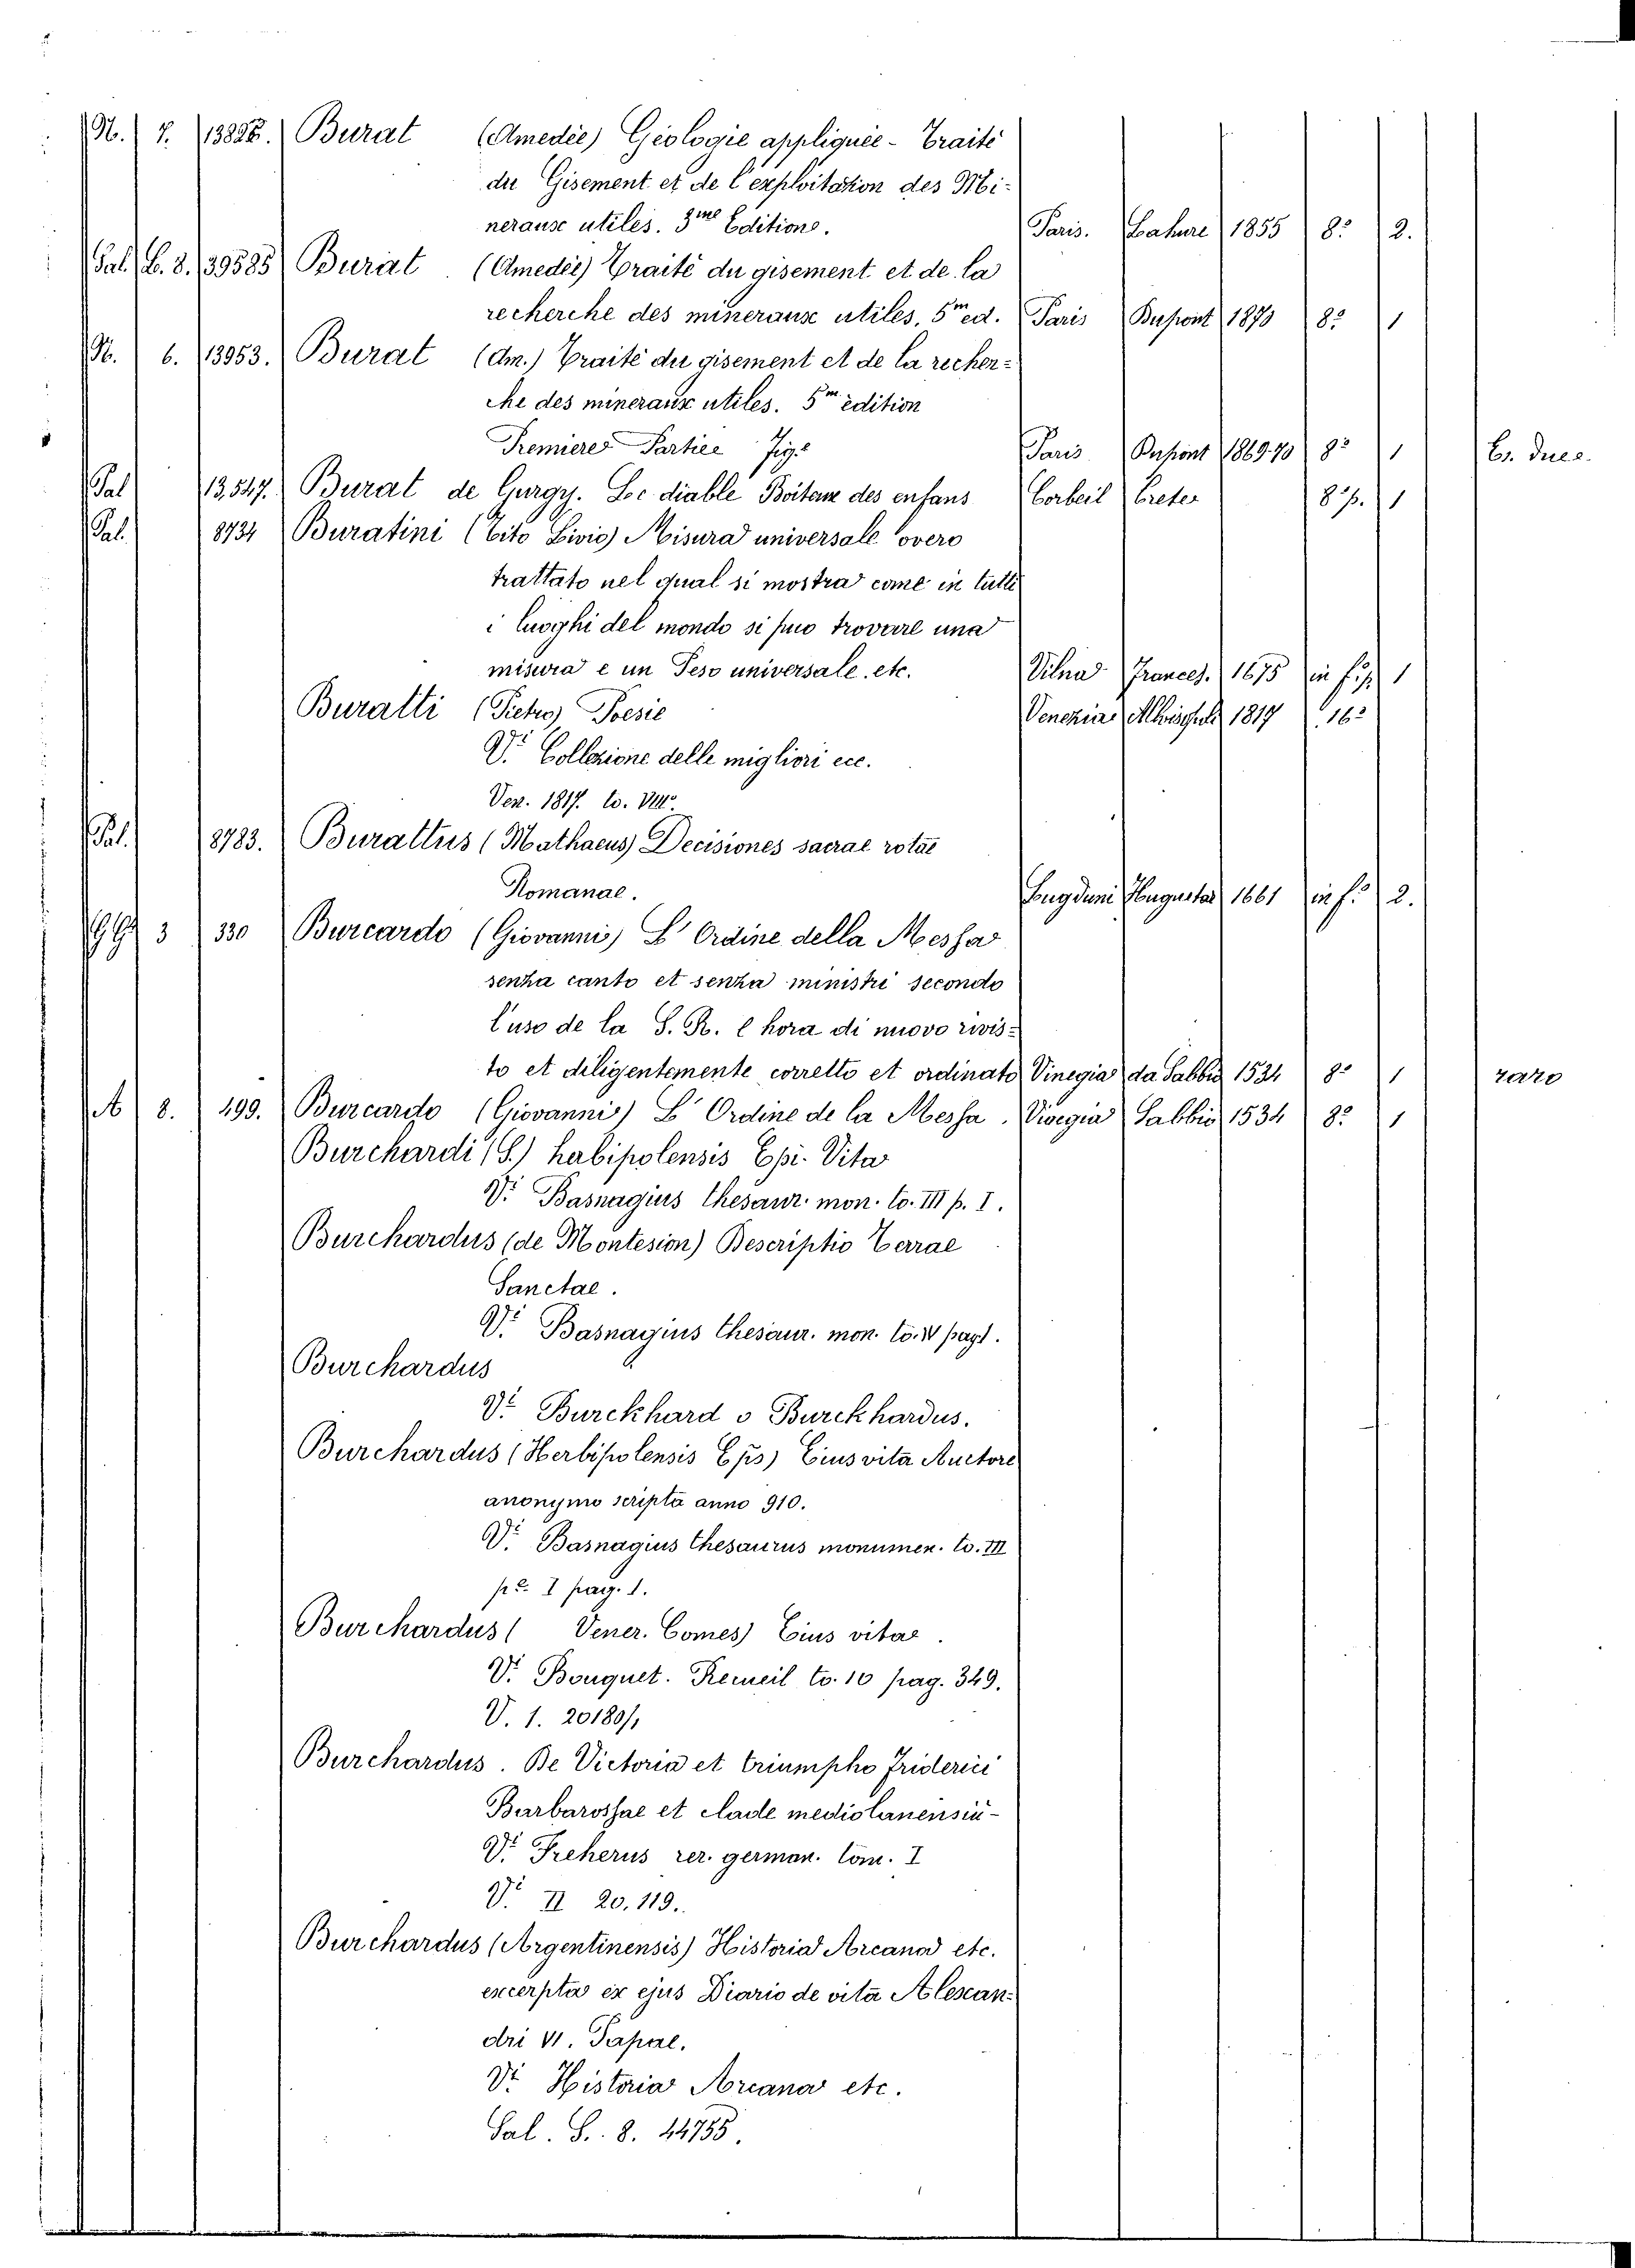 N. 7. 13828. Burat (Amedée) Géologie appliquée - Traité
du Gisement et de l'exploitation des Mi-
neraux utiles. 3me Editione. Paris. Lahure 1855 8º 2.
Sal. C. 8. 39585 Burat (Amedée) Traité du gisement et de la
recherche des mineraux utiles. 5m ed. Paris Dupont 1870 8º 1
N. 6. 13953. Burat (Am.) Traité du gisement et de la recher-
che des mineraux utiles. 5m edition
Premiere Partiee Fige Paris Dupont 1869-70 8º 1
Pal 13,547. Burat de Gurgy. Le diable Boiteux des enfans Corbeil Creter 8º p. 1
Pal. 8734 Buratini (Tito Livio) Misura universale overo
trattato nel qual si mostra come in tutti
i luoghi del mondo si può trovare una
misura e un Peso universale. etc. Vilna Frances. 1675 in fº p. 1
Buratti (Pietro) Poesie Venezia Alvisopoli 1817 16º
Vi Collezione delle migliori ecc.
Ven. 1817. to. VIII.
Pal. 8783. Burattus (Mathaeus) Decisiones sacrae rotae
Romanae. Lugduni Huguetan 1661 in fº 2.
GG 3 330 Burcardo (Giovanni) L'Ordine della Messa
senza canto et senza ministri secondo
l'uso de la S. R. e hora di nuovo rivis-
to et diligentemente corretto et ordinato Vinegia da Sabbio 1534 8º 1 raro
A 8. 499. Burcardo (Giovanni) L'Ordine de la Messa. Vinegia Sabbio 1534 8º 1
Burchardi (S.) herbipolensis Epi. Vita
Vi Basnagius thesaur. mon. to. III p. I.
Burchardus (de Montesion) Descriptio Terrae
Sanctae.
Vi Basnagius thesaur. mon. to. IV pag 1.
Burchardus
Vi Burckhard o Burckhardus.
Burchardus (Herbipolensis Eps) Eius vita Auctore
anonymo scripta anno 910.
Vi Basnagius thesaurus monumen. to. III
pe. I pag. 1.
Burchardus ( Vener. Comes) Eius vita.
Vi Bouquet. Recueil to. 10 pag. 349.
V. 1. 20180/1
Burchardus. De Victoria et triumpho Friderici
Barbarossae et clade mediolanensiū-
Vi Freherus rer. german. tom. I
Vi II 20.119.
Burchardus (Argentinensis) Historia Arcana etc.
excerpta ex ejus Diario de vita Alexan-
dri VI. Papae.
Vi Historia Arcana etc.
Sal. S. 8. 44755.